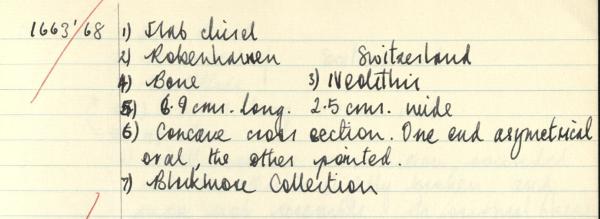 1663'68 1) Slab chisel
2) Robenhausen Switzerland
4) Bone 3) Neolithic
5) 6.9 cms. long. 2.5 cms. wide
6) Concave cross section. One end asymetrical
oval, the other pointed.
7) Blackmore Collection